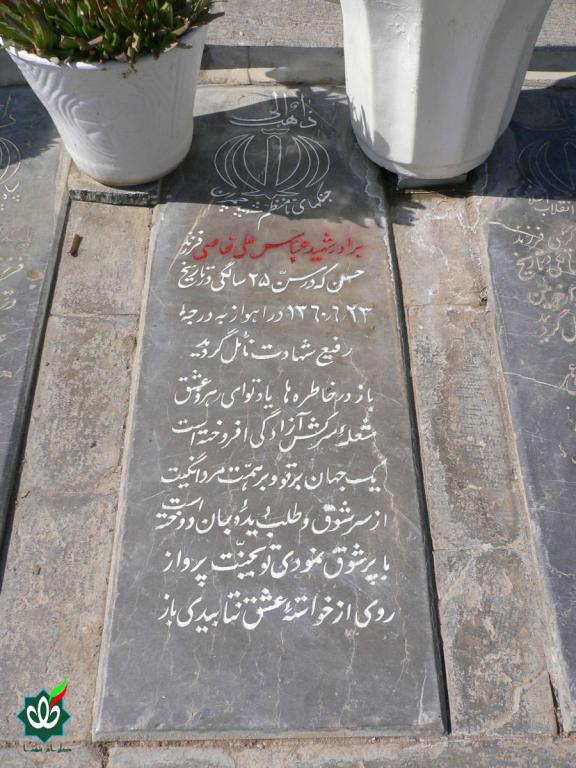 جنگهای نامنظم شهید چمران
برادر شهید عباس علی خاصی فرزند
حسن که در سن ۲۵ سالگی در تاریخ
۱۳۶۰/۶/۲۳ در اهواز به درجهٔ
رفیع شهادت نائل گردید
باز در خاطره ها یاد تو ای رهرو عشق
شعلهٔ سرکش آزادگی افروخته است
یک جهان بر تو و بر همت مردانگیت
از سر شوق و طلب دیدهٔ جان دوخته است
با پر شوق نمودی تو بحینت پرواز
روی از خواستهٔ عشق نتابیدی باز